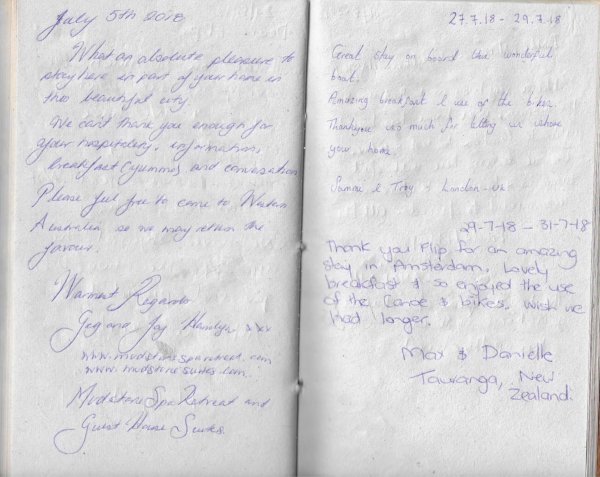 July 5th 2018
What an absolute pleasure to
stay here in part of your home in
this beautiful city.
We can't thank you enough for
your hospitality, information,
breakfast (yummo) and conversation
Please feel free to come to Western
Australia so we may return the
favour.
Warmest Regards
Greg and Joy xxx
www.mudstonespararetreat.com
www.mudstonesuites.com
Mudstone Spa Retreat and
Guest House Suites.
27.7.18 - 29.7.18
Great stay on board this wonderful
boat.
Amazing breakfast & use of the bikes.
Thankyou very much for letting us share
your home.
& Troy - London - UK
29-7-18 - 31-7-18
Thank you Flip for an amazing
stay in Amsterdam. Lovely
breakfast & so enjoyed the use
of the Canoe & bikes. Wish we
had longer.
Max & Danielle
Tauranga, New
Zealand.